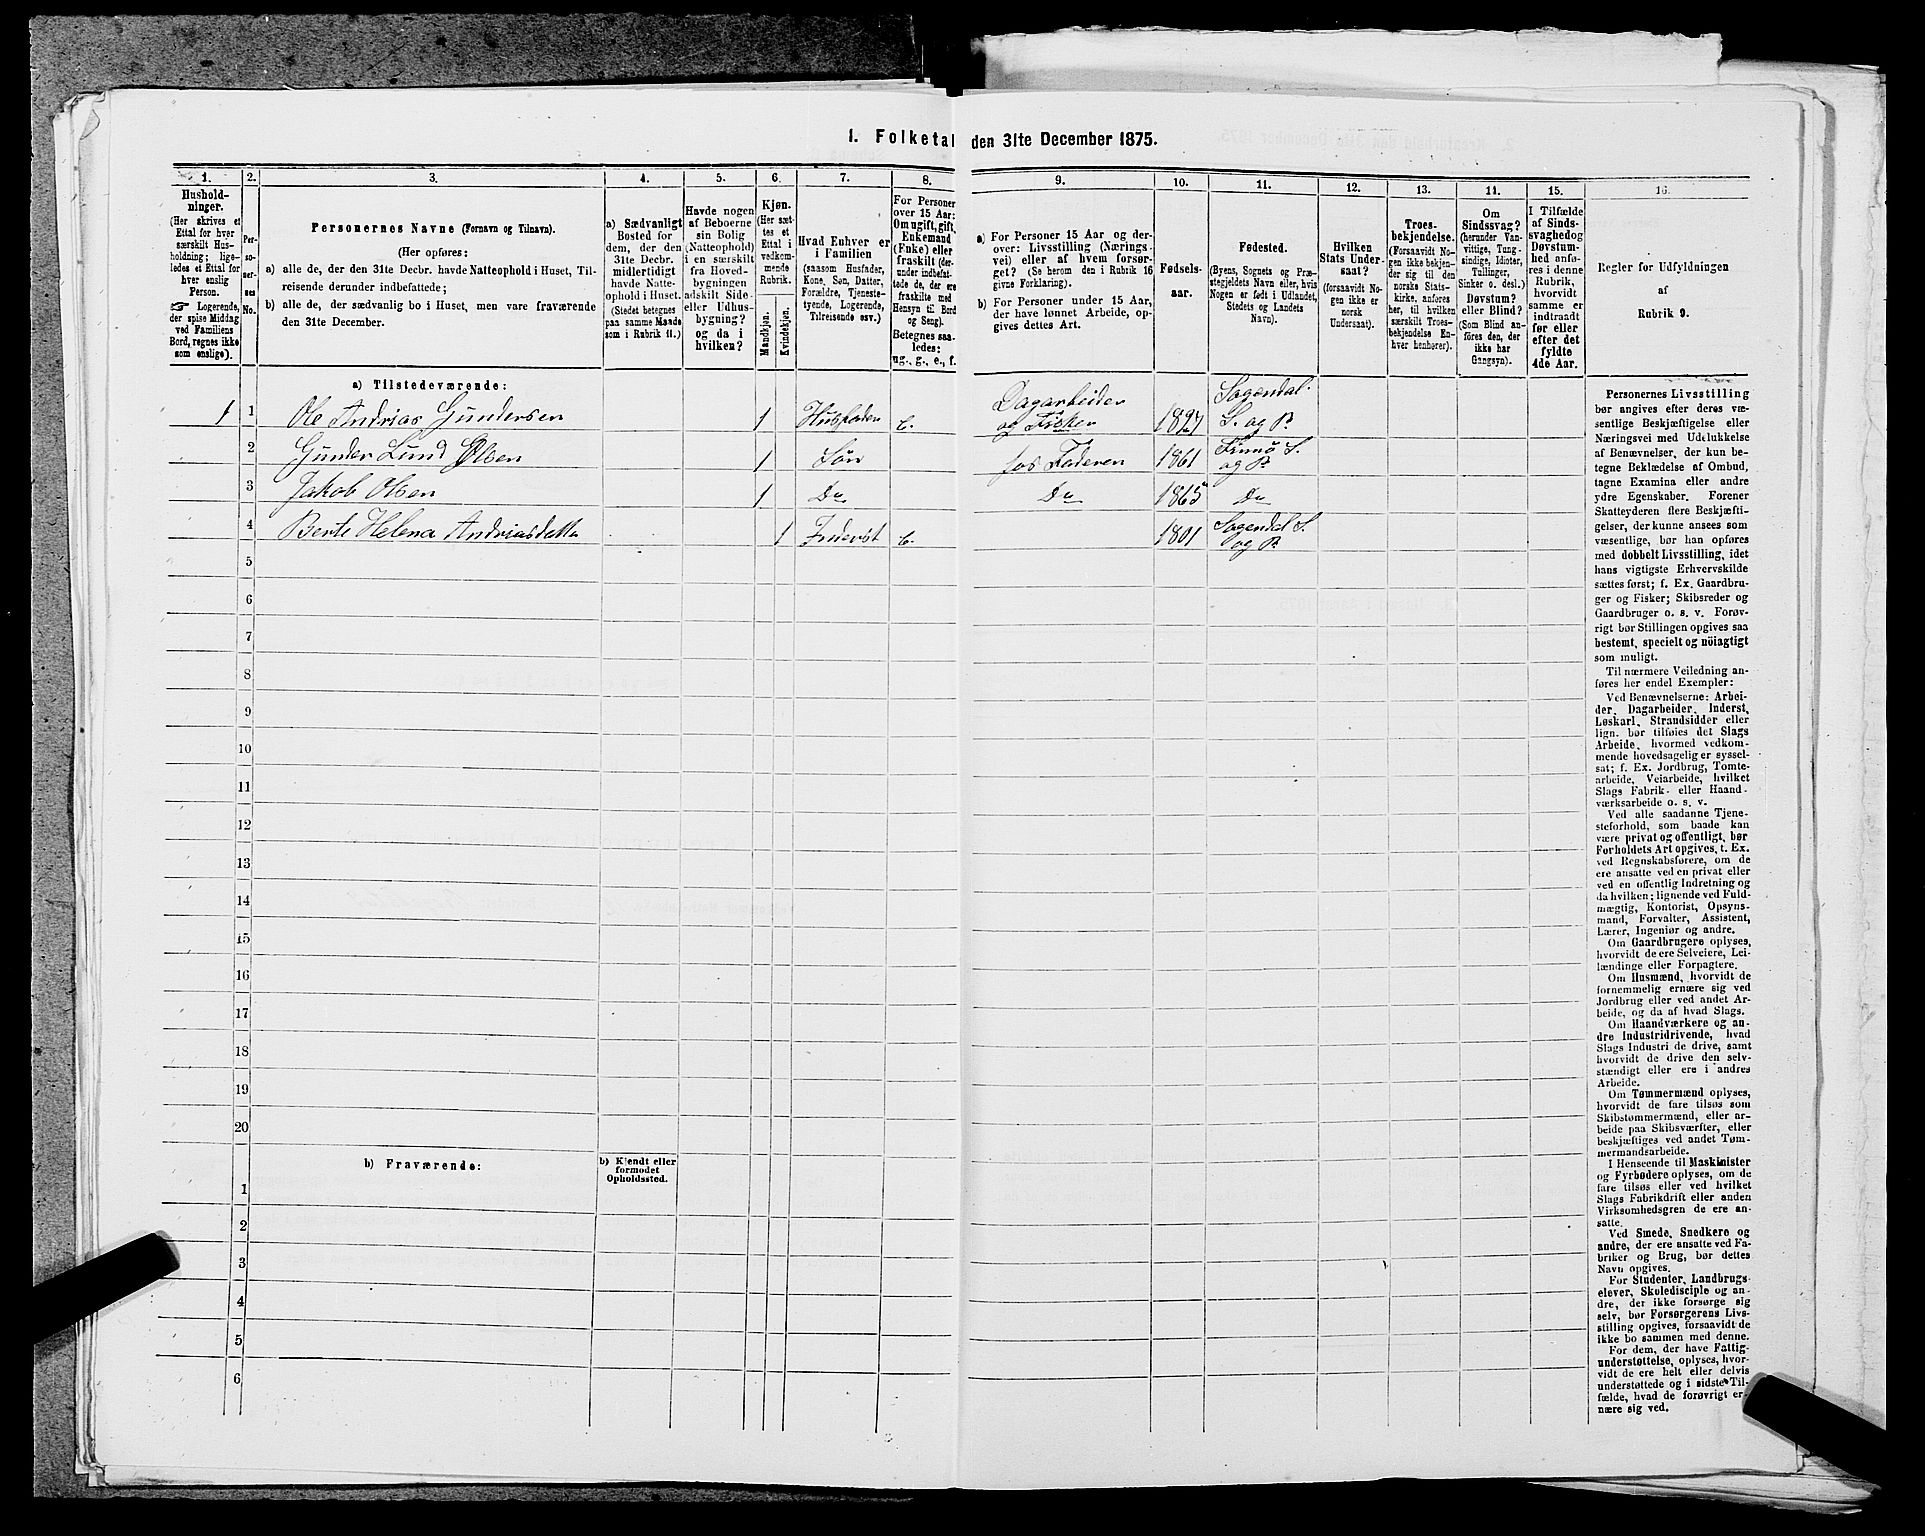 1. Folketal den 31te December 1875.
1.
2.
3.
4.
5.
6.
7.
8.
9.
10.
11.
12.
13.
14.
15.
16.
Hushold-
ninger.
(Her skrives et
Ettal for hver
særskilt Hus-
holdning; lige-
ledes et Ettal for
hver enslig
Person.
☞ Logerende,
der spise Middag
ved Familiens
Bord, regnes ikke
som enslige).
Per-
so-
ner-
nes
No.
Personernes Navne (Fornavn og Tilnavn).
(Her opføres:
a) alle de, der den 31te Decbr. havde Natteophold i Huset, Til-
reisende derunder indbefattede;
b) alle de, der sædvanlig bo i Huset, men vare fraværende
den 31te December.
a) Sædvanligt
Bosted for
dem, der den
31te Decbr.
midlertidigt
havde Natte-
ophold i Huset.
(Stedet betegnes
paa samme Maade
som i Rubrik 11.)
Havde nogen
af Beboerne
sin Bolig
(Natteophold)
i en særskilt
fra Hoved-
bygningen
adskilt Side-
eller Udhus-
bygning?
og da i
hvilken?
Kjøn.
(Her sæt-
tes et
Ettal i
vedkom-
mende
Rubrik.
Mandkjøn.
Kvindekjøn.
Hvad Enhver er
i Familien
(saasom Husfader,
Kone, Søn, Datter,
Forældre, Tjeneste-
tyende, Logerende,
Tilreisende osv.)
For Personer
over 15 Aar:
Om ugift, gift,
Enkemand
(Enke) eller
fraskilt (der-
under indbefat-
tede de, der ere
fraskilte med
Hensyn til Bord
og Seng).
Betegnes saa-
ledes:
ug., g., e., f.
a) For Personer 15 Aar og der-
over: Livsstilling (Nærings-
vei) eller af hvem forsør-
get? (Se herom den i Rubrik 16
givne Forklaring).
b) For Personer under 15 Aar,
der have lønnet Arbeide, op-
gives dettes Art.
Fødsels-
aar.
Fødested.
(Byens, Sognets og Præ-
stegjeldets Navn eller, hvis
Nogen er født i Udlandet,
Stedets og Landets
Navn).
Hvilken
Stats Under-
saat?
(forsaavidt No-
gen ikke er
norsk
Undersaat).
Troes-
bekjendelse.
(Forsaavidt No-
gen ikke bekjen-
der sig til den
norske Stats-
kirke, anføres
her, til hvilken
særskilt Troes-
bekjendelse En-
hver henhører).
Om
Sindssvag?
(herunder Van-
vittige, Tung-
sindige, Idioter,
Tullinger,
Sinker o. desl.)
Døvstum?
eller Blind?
(Som Blind an-
føres den, der
ikke har
Gangsyn).
I Tilfælde
af Sinds-
svaghed og
Døvstum-
hed anfø-
res i denne
Rubrik,
hvorvidt
samme er
indtraadt
før eller
efter det
fyldte
4de Aar.
Regler for Udfyldningen
af
Rubrik 9.
a) Tilstedeværende:
1 1 Ole Andrias Gundersen 1 Husfader e. Dagarbeider og Fisker 1827 Sogendal S. og P.
2 Gunder Lund Olsen 1 Søn fos Faderen 1861 S. og P.
3 Jakob Olsen 1 Do Do 1865 Do
4 Berte Helena Andriasdatter 1 Inderst e. 1801 Sogendal S. og P.
5
6
7
8
9
10
11
12
13
14
15
16
17
18
19
20
b) Fraværende:
b) Kjendt eller
formodet
Opholdssted.
1
2
3
4
5
6
Personernes Livsstilling
bør angives efter deres væ-
sentlige Beskjæftigelse eller
Næringsvei med Udelukkelse
af Benævnelser, der kun be-
tegne Beklædelse af Ombud,
tagne Examina eller andre
ydre Egenskaber. Forener
Skatteyderen flere Beskjæfti-
gelser, der kunne ansees som
væsentlige, bør han opføres
med dobbelt Livsstilling, idet
hans vigtigste Erhvervskilde
sættes først; f. Ex. Gaardbru-
ger og Fisker; Skibsreder og
Gaardbruger o. s. v. Forøv-
rigt bør Stillingen opgives saa
bestemt, specielt og nøiagtigt
som muligt.
Til nærmere Veiledning an-
føres her endel Exempler:
Ved Benævnelserne: Arbei-
der, Dagarbeider, Inderst,
Løskarl, Strandsidder eller
lign. bør tilføies det Slags
Arbeide, hvormed vedkom-
mende hovedsagelig er syssel-
sat; f. Ex. Jordbrug, Tomte-
arbeide, Veiarbeide, hvilket
Slags Fabrik- eller Haand-
værksarbeide o. s. v.
Ved alle saadanne Tjene-
steforhold, som baade kan
være privat og offentligt, bør
Forholdets Art opgives, t. Ex.
ved Regnskabsførere, om de
ere ansatte ved en privat eller
ved en offentlig Indretning og
da hvilken; lignende ved Fuld-
mægtig, Kontorist, Opsyns-
mand, Forvalter, Assistent,
Lærer, Ingeniør og andre.
Om Gaardbrugere oplyses,
hvorvidt de ere Selveiere, Lei-
lændinge eller Forpagtere.
Om Husmænd, hvorvidt de
fornemmelig ernære sig ved
Jordbrug eller ved andet Ar-
beide, og da af hvad Slags.
Om Haandværkere og an-
dre Industridrivende, hvad
Slags Industri de drive, samt
hvorvidt de drive den selv-
stændigt eller ere i andres
Arbeide.
Om Tømmermænd oplyses,
hvorvidt de fare tilsøs som
Skibstømmermænd, eller ar-
beide paa Skibsværfter, eller
beskjæftiges ved andet Tøm-
mermandsarbeide.
I Henseende til Maskinister
og Fyrbødere oplyses, om de
fare tilsøs eller ved hvilket
Slags Fabrikdrift eller anden
Virksomhedsgren de ere an-
satte.
Ved Smede, Snedkere og
andre, der ere ansatte ved Fa-
briker og Brug, bør dettes
Navn opgives.
For Studenter, Landbrugs-
elever, Skoledisciple og an-
dre, der ikke forsørge sig
selv, bør Forsørgerens Livs-
stilling opgives, forsaavidt de
ikke bo sammen med denne.
For dem, der have Fattig-
understøttelse, oplyses, hvor-
vidt de ere helt eller delvis
understøttede og i sidste Til-
fælde, hvad de forøvrigt er-
nære sig ved.